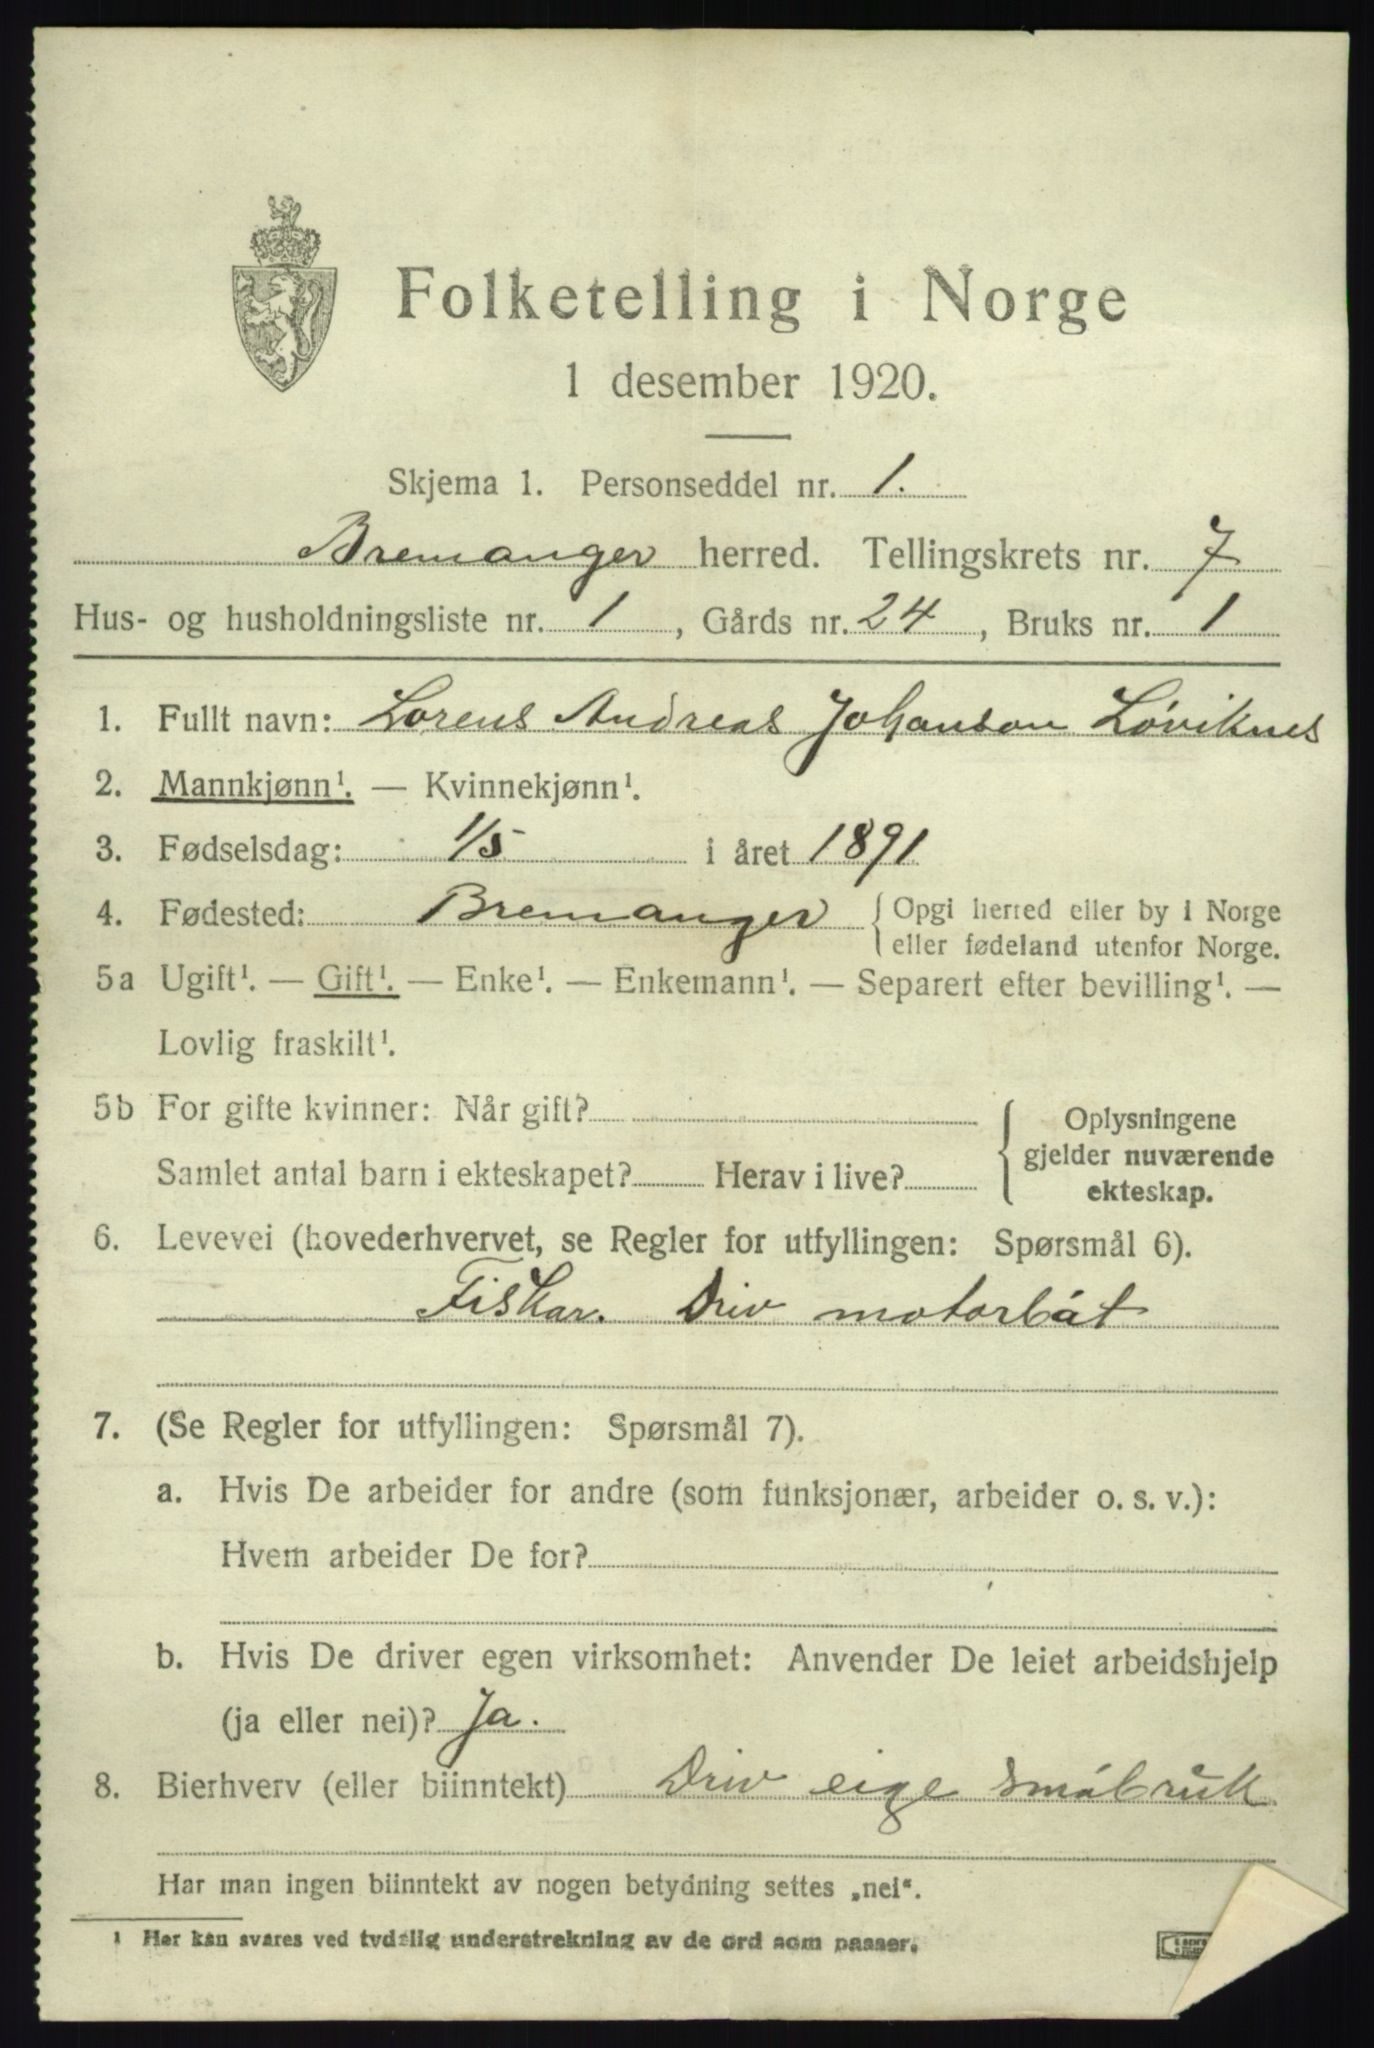 Folketelling i Norge
1 desember 1920.
Skjema 1. Personseddel nr. 1.
Bremanger herred. Tellingskrets nr. 7
Hus- og husholdningsliste nr. 1, Gårds nr. 24, Bruks nr. 1
1. Fullt navn: Lorens Andreas Johanson Løviknes
2. Mannkjønn¹. — Kvinnekjønn¹.
3. Fødselsdag: 1/5 i året 1891
4. Fødested: Bremanger { Opgi herred eller by i Norge
eller fødeland utenfor Norge.
5a Ugift¹. — Gift¹. — Enke¹. — Enkemann¹. — Separert efter bevilling¹. —
Lovlig fraskilt¹.
5b For gifte kvinner: Når gift?
Samlet antal barn i ekteskapet? Herav i live?
{ Oplysningene
gjelder nuværende
ekteskap.
6. Levevei (hovederhvervet, se Regler for utfyllingen: Spørsmål 6).
Fiskar. Driv motorbåt
7. (Se Regler for utfyllingen: Spørsmål 7).
a. Hvis De arbeider for andre (som funksjonær, arbeider o. s. v.):
Hvem arbeider De for?
b. Hvis De driver egen virksomhet: Anvender De leiet arbeidshjelp
(ja eller nei)? Ja.
8. Bierhverv (eller biinntekt) Driv eige småbruk
Har man ingen biinntekt av nogen betydning settes „nei".
¹ Her kan svares ved tydelig understrekning av de ord som passer.